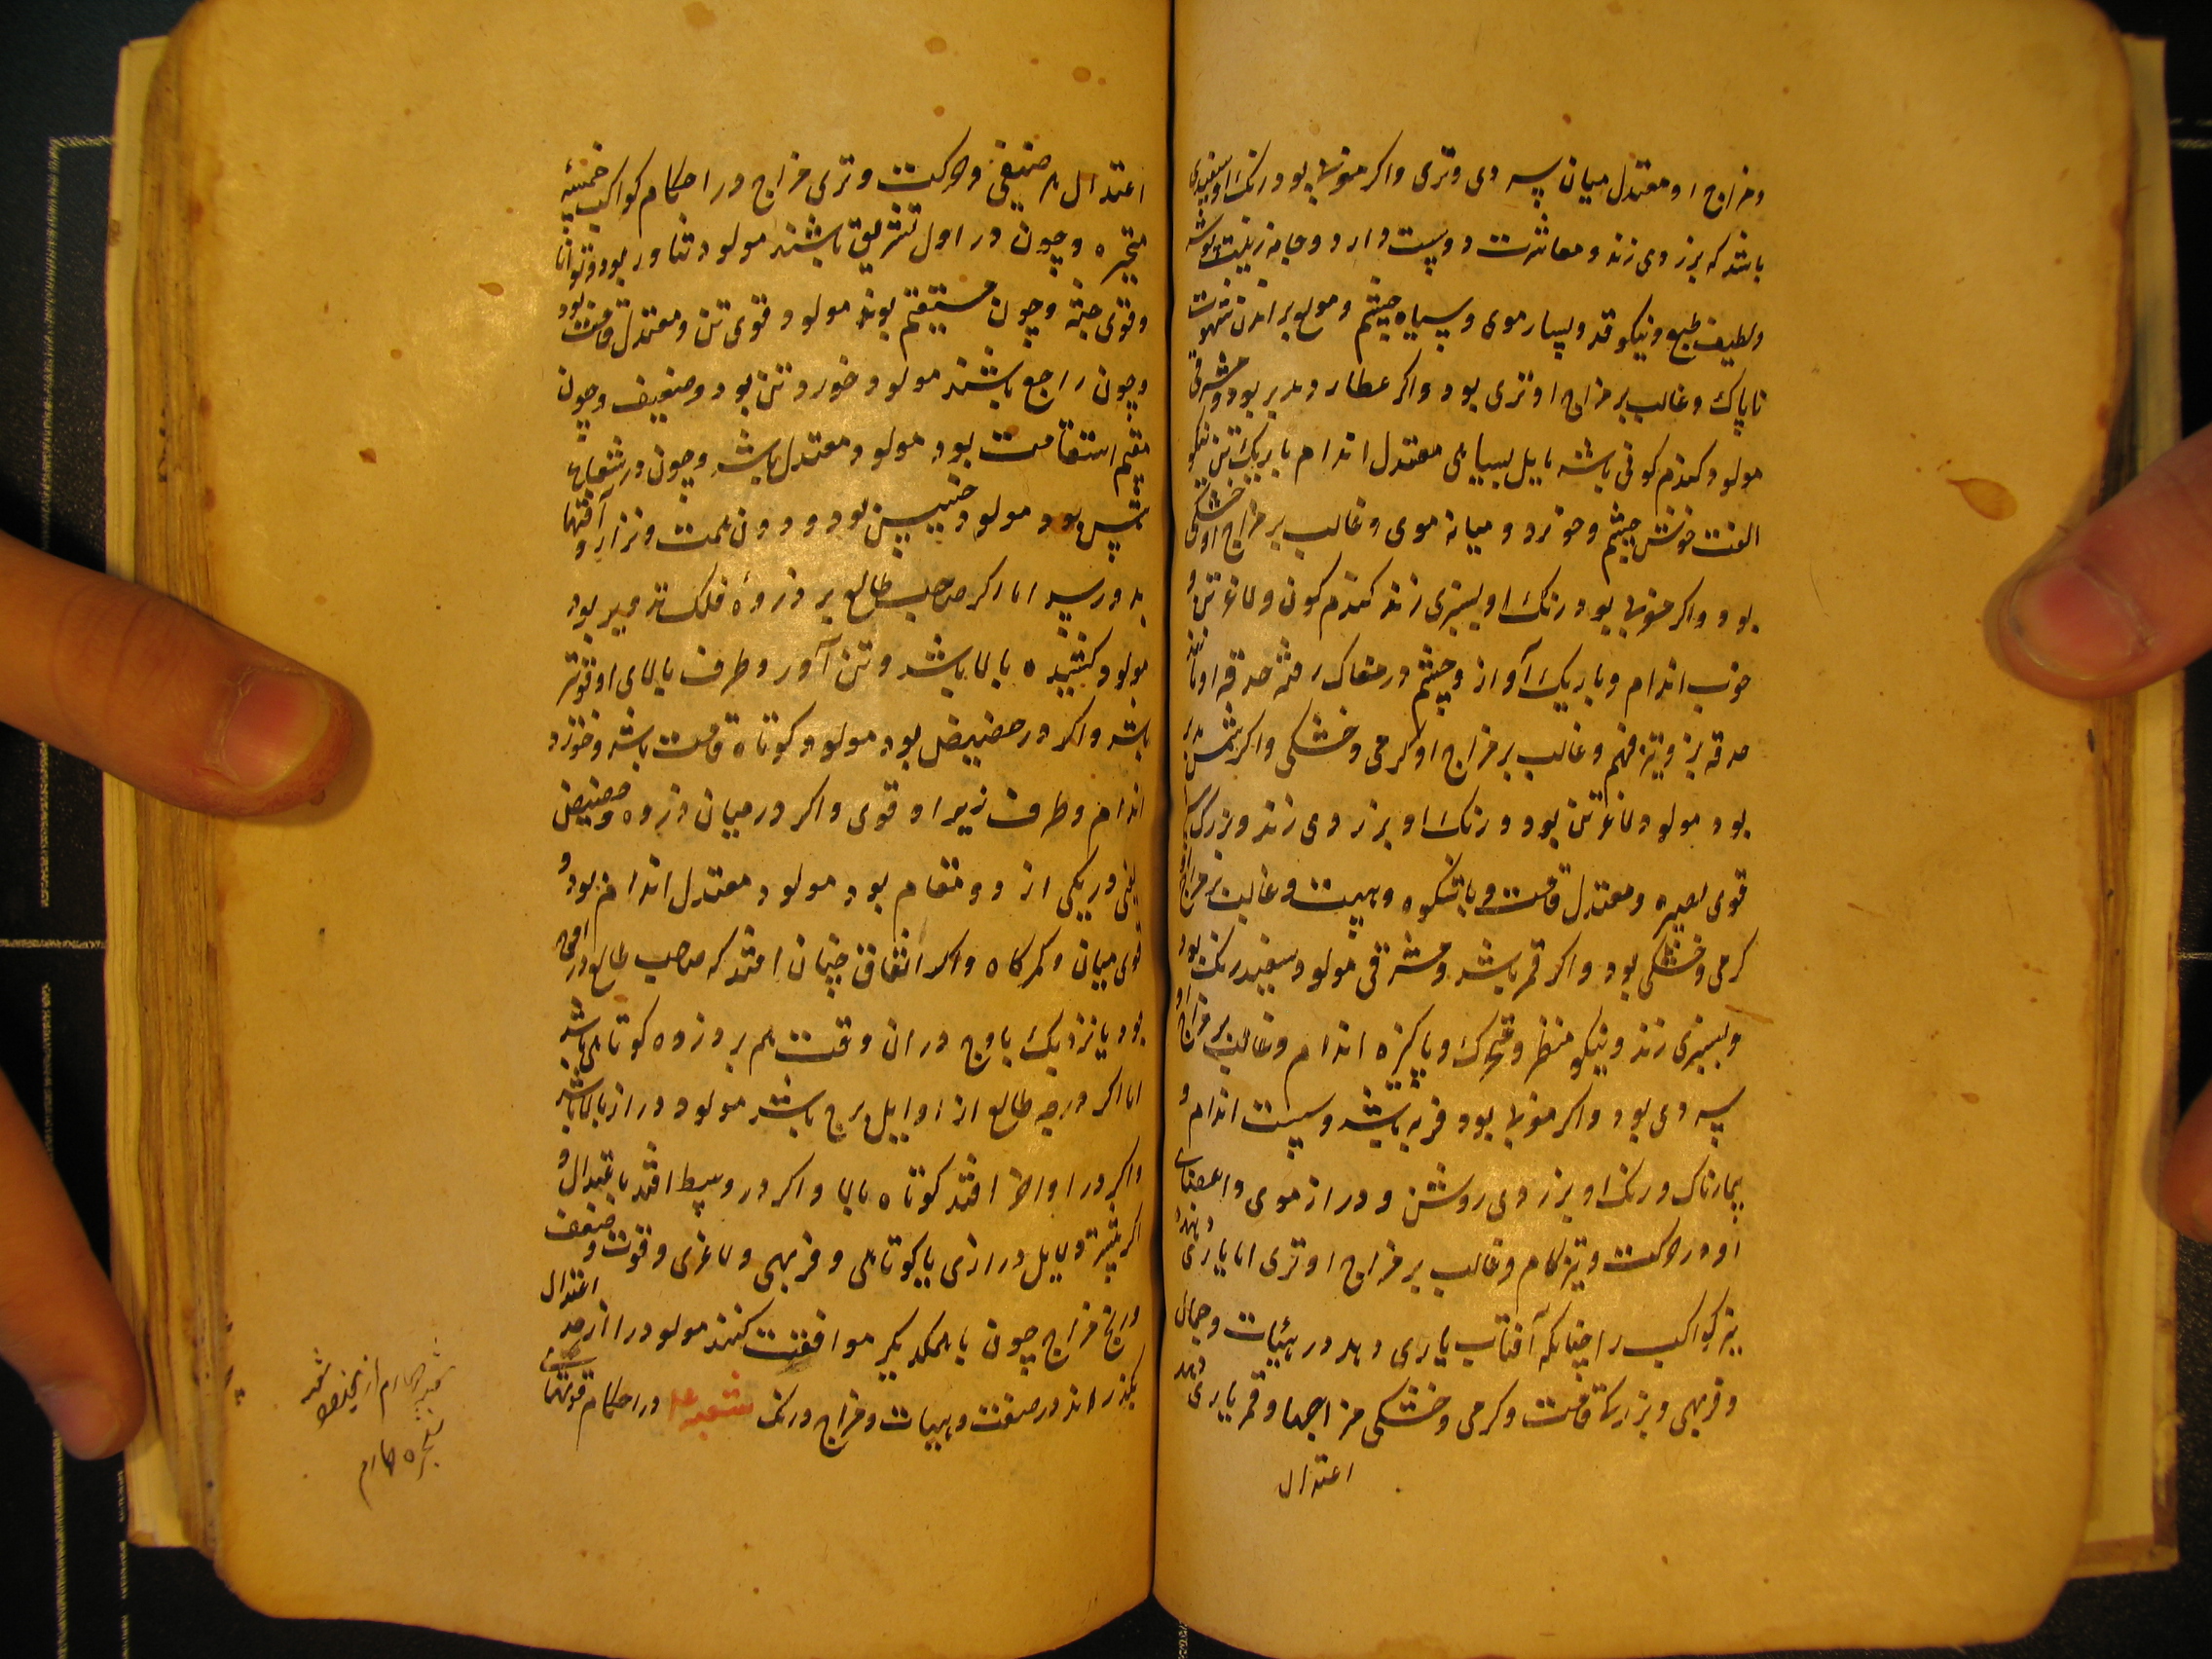 و مزاج او معتدل میان سردی و تری و اکر مغربی بود رنک او سفیدی
باشد که بزردی زند و معاشرت دوست دارد و جامه زینت پوشد
و لطیف طبع و نیکو قد و بسیار موی و سیاه چشم و مولع بر اندن شهوات
ناپاک و غالب بر مزاج او تری بود و اکر عطارد مدبر بود و مشرقی
مولود کندم کون باشد مایل بسیاهی معتدل اندام باریک تن نیکو
الفت خوش چشم و خورد و میانه موی و غالب بر مزاج او خشکی
بود و اکر مغربی بود رنک او بسبزی زند کندم کون و لاغر تن و
خوب اندام و باریک آواز و چشم در مغاک رفته حدقه او مانند
حدقه بز و تیز فهم و غالب بر مزاج او کرمی و خشکی و اکر شمس مدبر
بود مولود لاغر تن بود و رنک او بزردی زند و بزرک
قوی بصیره و معتدل قامت و باشکوه و هیبت و غالب بر مزاج او
کرمی و خشکی بود و اکر قمر باشد و مشرقی مولود سفید رنک بود
و بسبزی زند و نیکو منظر و متحرک و پاکیزه اندام و غالب بر مزاج او
سردی بود و اکر مغربی بود فربه باشد و سست اندام و
بیمارناک و رنک او بزردی روشن و دراز موی و اعضای
او در حرکت و تیز کام و غالب بر مزاج او تری اما یاری دهنده
نیز کواکب را چنانکه آفتاب یاری دهد در هیئات و جمال
و فربهی و بزرکی قامت و کرمی و خشکی مزاجها و قمر یاری دهد
اعتدال
اعتدال ضعیفی و حرکت و تری مزاج در احکام کواکب خمسه
متحیره و چون در اول تشریق باشند مولود تناور بود و توانا
و قوی جثه و چون مستقیم بوند مولود قوی تن و معتدل قامت بود
و چون راجع باشند مولود خورد تن بود و ضعیف و چون
مقیم استقامت بود مولود معتدل باشد و چون در شعاع
شمس بود مولود خسیس بود و دون همت و نزار و آفتها
بدو رسد اما اکر صاحب طالع بر ذروهٔ فلک تدویر بود
مولود کشیده بالا باشد و تن آور و طرف بالای او قویتر
باشد و اکر در حضیض بود مولود کوتاه قامت باشد و خورد
اندام و طرف زیر او قوی و اکر در میان ذروه و حضیض
یعنی در یکی از دو مقام بود مولود معتدل اندام بود و
قوی میان و کمرکاه و اکر اتفاق چنان افتد که صاحب طالع در اوج
بود یا نزدیک باوج در ان وقت هم بر ذروه کوتاهی باشد
اما اکر درجه طالع از اوایل برج باشد مولود دراز بالا باشد
و اکر در اواخر افتد کوتاه بالا و اکر در وسط افتد باعتدال و
اکر بیشتر دلایل درازی یا کوتاهی و فربهی و لاغری و قوت و ضعف
و رنج مزاج چون با همدیکر موافقت کنند مولود را از حد اعتدال
بکذرانند در صفت و هیات و مزاج و رنک شعبه در احکام قوتهای
شعبه چهارم از
شجره چهارم